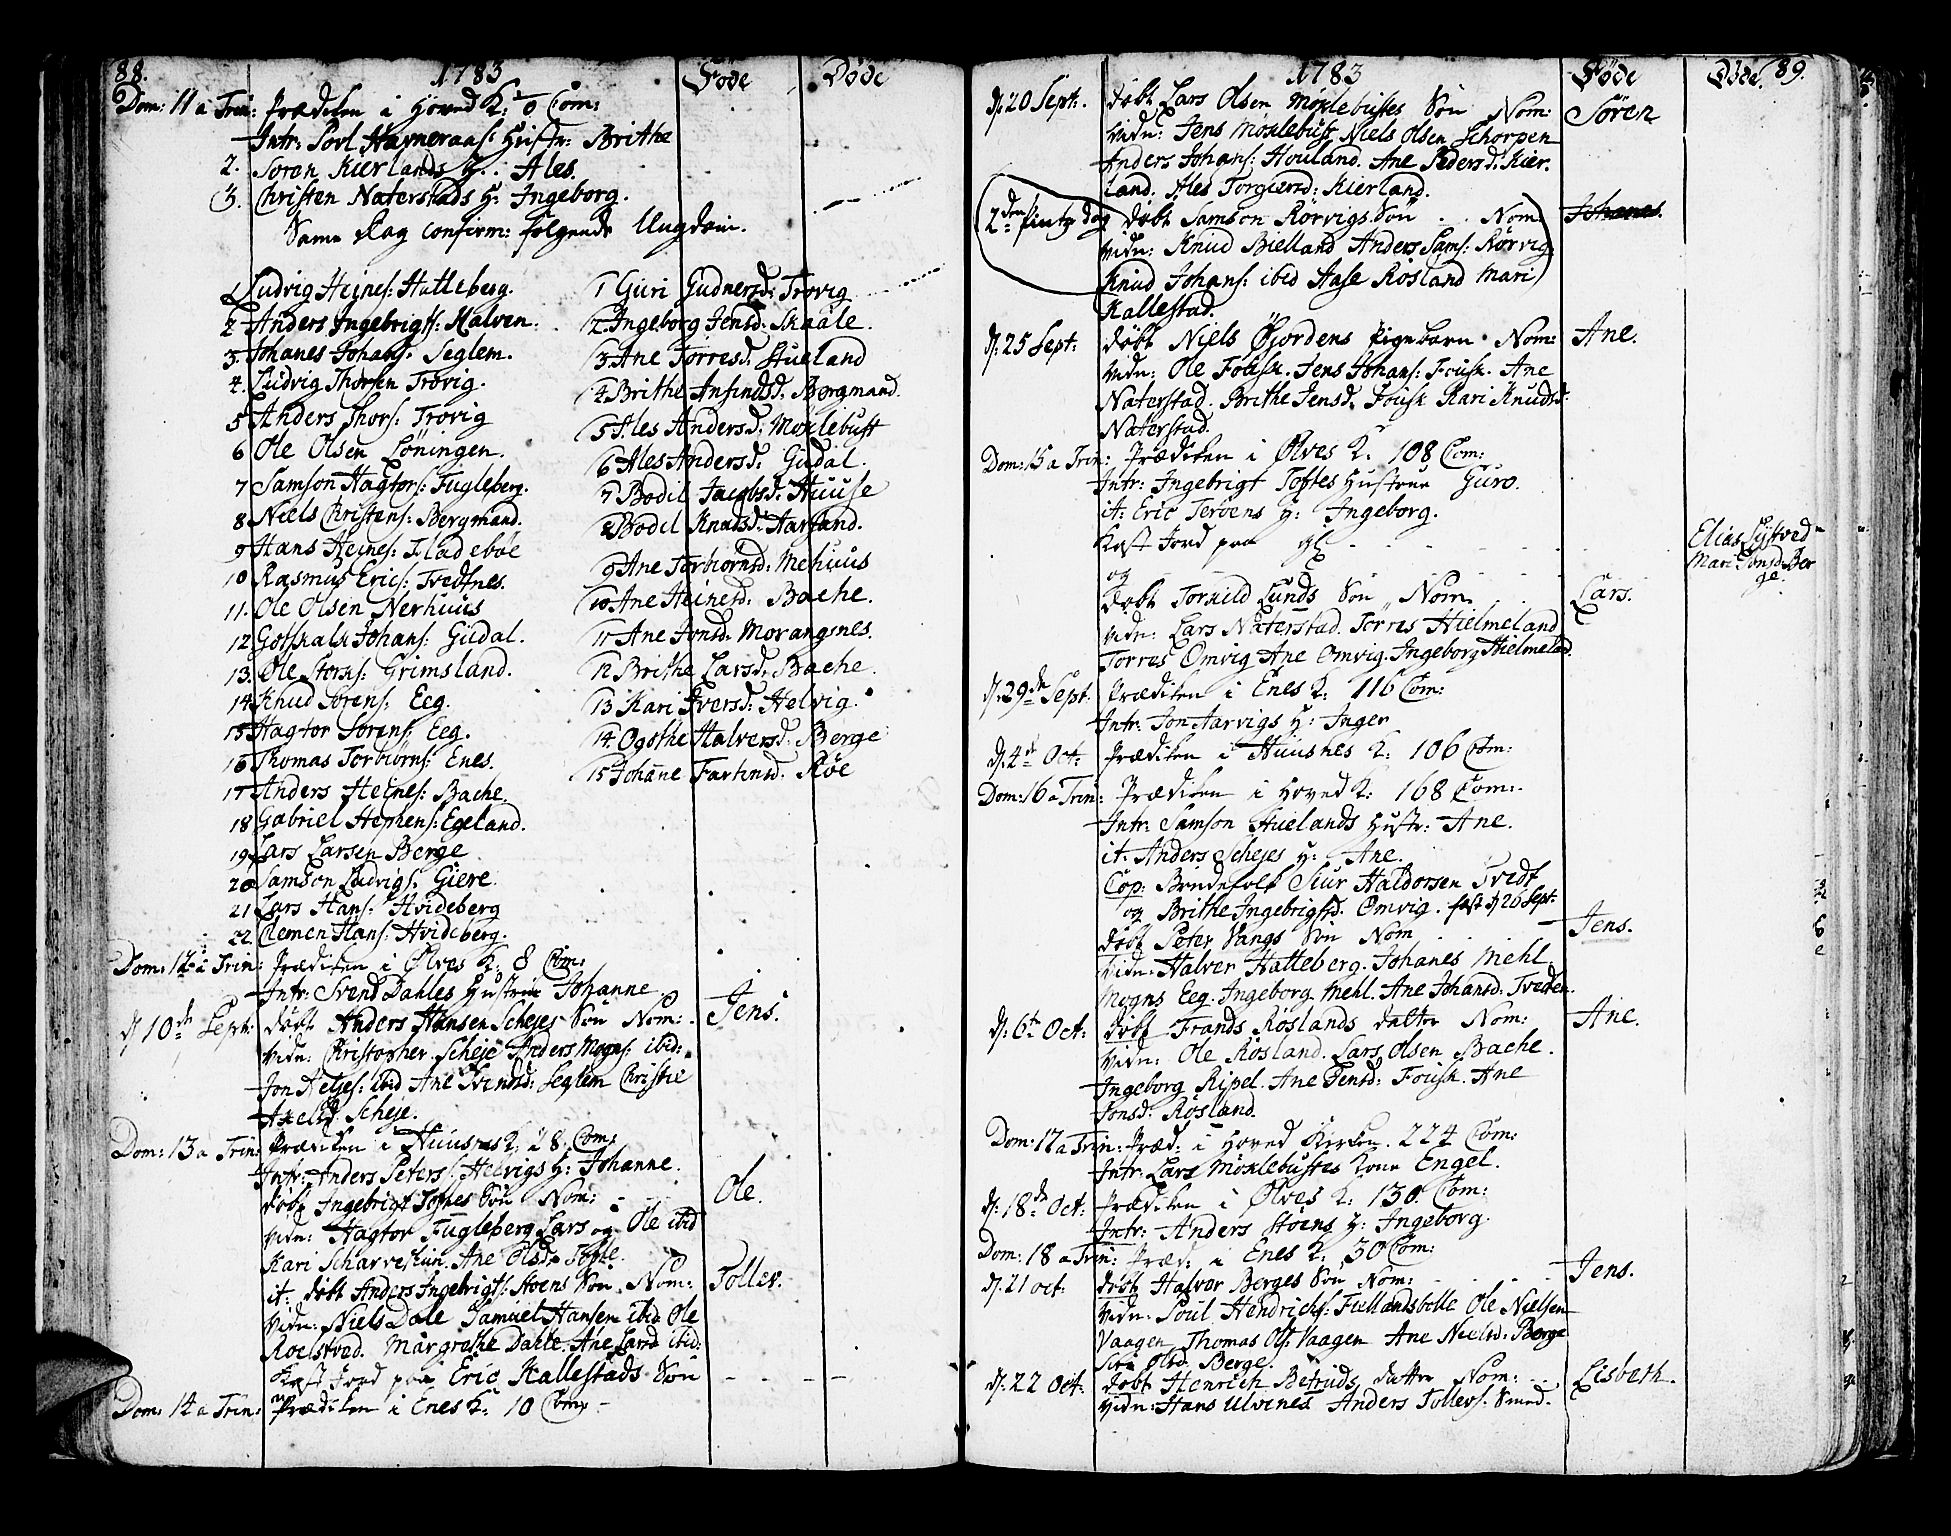 88. 1783 Föde Döde
Dom: 11 a Trin: Prædiken i Hoved K: 0 Com:
Intr: Povl Havneraas: Hustr: Brithe
2. Søren Kierlands H: Ales.
3. Christen Naterstads H: Ingeborg.
Samme Dag confirm: følgende Ungdom.
1 Ludvig Heines: Hatteberg.
2 Anders Ingebrigts: Malven.
3. Johanes Johans: Seglem.
4. Ludvig Thorsen Trovig.
5 Anders Thors: Trovig
6 Ole Olsen Löningen.
7 Samson Hagtors: Fugleberg.
8 Niels Christens: Bergmand.
9 Hans Heines: Fladebøe
10 Rasmus Erics: Tvedtnes.
11. Ole Olsen Nerhuus
12 Gotskalk Johans: Gudal.
13. Ole Storks: Grimsland.
14 Knud Sörens: Eeg.
15 Hagtor Sörens: Eeg.
16 Thomas Torbiörns: Enes.
17 Anders Heines: Bache.
18 Gabriel Stephens: Egeland.
19 Lars Larsen Berge
20 Samson Ludvigs: Giere.
21 Lars Hans: Hvideberg
22 Clemen Hans: Hvideberg.
1 Guri Gudnersd: Trovig
2. Ingeborg Jensd: Skaale.
3. Ane Torresd: Stueland
4. Brithe Ansindsd: Bergmand.
5 Ales Andersd: Moxlebust
6 Ales Andersd: Gudal.
7 Bodil Jacobsd: Huuse
8 Bodil Knudsd: Aarsand.
9 Ane Torbiornsd: Mehuus
10 Ane Heinesd: Bache.
11 Ane Jonsd: Morangsnes.
12 Brithe Larsd: Bache.
13 Kari Iversd: Helvig.
14. Ogothe Halversd: Berge
15 Johane Fartensd: Röe
Dom: 12 a Trin: Prædiken i Ølves K: 8 Com:
Intr: Svend Dahles Hustrue Johanne.
d. 10de Sept: döbt Anders Hansen Schejes Sön Nom: Jens.
vidn: Christopher Scheje Anders Mogns: ibid:
Jon Hetjes: ibid Ane Svendsd: Seglem Christie
Axelsd. Scheje.
Dom: 13 a Trin: Prædiken i Huusnes K: 28. Com:
Intr: Anders Peters: Helvigs H: Johanne.
döbt Ingebrigt Toftes Sön Nom: Ole.
vidn: Hagtor Fugleberg Lars og Ole ibid
Kari Scharveskun. Ane Olsd. Tofte.
it: döbt Anders Ingebrigts: Stoens Sön Nom: Tollev.
vidn: Niels Dale Samuel Hansen ibid Ole
Roelstved. Margrethe Dahle. Ane Larsd ibid:
Kast Jord paa Eric Kallestads Sön
Dom: 14 a Trin: Prædiken i Enes K: 10 Com:
1783 Föde Döde 89.
d. 20 Sept: Döbt Lars Olsen Moxlebustes Sön Nom: Sören
vidn: Jens Moxlebust Niels Olsen Schorpen
Anders Johans: Houland. Ane Pedersd: Kier-
land. Ales Torgiersd: Kierland.
2den Pintzdag döbt Samson Rörvigs Sön Nom: Johanes.
vidn: Knud Bielland Anders Sams: Rörvig
Knud Johans: ibid Aase Rosland Mari
Kallestad.
d. 25 Sept: döbt Niels Öyordens Pigebarn Nom: Ane.
vidn: Ole Fousk. Jens Johans: Fousk. Ane
Naterstad. Brithe Jensd. Fousk Kari Knudsd:
Naterstad.
Dom: 15 a Trin: Prædiken i Ølves K: 108 Com:
Intr: Ingebrigt Toftes Hustrue Guro.
it: Eric Teröens H: Ingeborg.
Kast Jord paa Elias Sysved
og Mari Jonsd: Ber
ge.
döbt Torkild Lunds Sön Nom: Lars.
vidn: Lars Naterstad. Torres Hielmeland
Torres Omvig Ane Omvig. Ingeborg Hielmeland.
d. 29de Sept. Prædiken i Enes K: 116 Com:
Intr: Jon Aarvigs H: Inger
d. 4de Oct: Prædiken i Huusnes K: 106 Com:
Dom: 16 a Trin: Prædiken i Hoved K: 168 Com:
Intr: Samson Stuelands Hustr: Ane.
it: Anders Schejes H: Ane.
Cop: Brudefolk Siur Haldorsen Tvedt
og Brithe Ingebrigtsd. Omvig. fæst d. 26 Sept:
döbt Peter Vangs Sön Nom Jens.
vidn: Halver Hatteberg. Johanes Mehl
Mogns Eeg. Ingeborg Mehl. Ane Johansd: Tveden.
d: 6te Oct: döbt Frands Röslands datter Nom: Ane.
vidn: Ole Rösland. Lars Olsen Bache.
Ingeborg Ripel. Ane Jensd: Fousk. Ane
Jonsd: Rösland.
Dom: 17 a Trin: Præd: i Hoved Kirken. 224 Com:
Intr: Lars Moxlebustes Kone Engel.
d: 18de Oct: Prædiken i Ølves K: 130. Com:
Intr: Anders Stoens H: Ingeborg.
Dom: 18 a Trin: Præd: i Enes K: 30 Com:
d. 21 oct: döbt Halver Berges Sön Nom: Jens.
vidn: Poul Hendrichs: Fiellandsbölle Ole Nielsen
Vaagen Thomas Ols: Vaagen Ane Nielsd: Berge
Siri Olsd. Berge.
d: 22 Oct: döbt Henrich Betruds datter Nom: Lisbeth.
vidn: Hans Ulvenes Anders Tollevs: Smed.